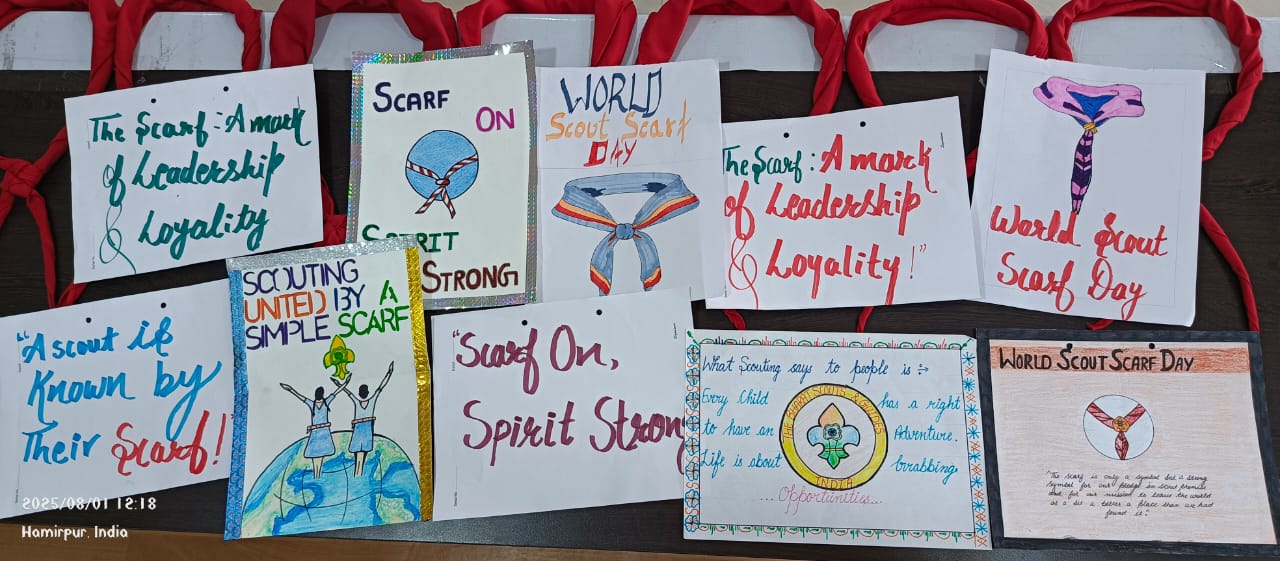 The Scarf: A mark
of Leadership
& Loyality
SCARF
ON
SPIRIT
STRONG
WORLD
Scout Scarf
DAY
The Scarf: A mark
of Leadership
& Loyality!"
World Scout
Scarf Day
"A scout is
Known by
Their Scarf!"
SCOUTING
UNITED BY A
SIMPLE SCARF
"Scarf On,
Spirit Strong
What Scouting says to people is :-
Every Child has a right
to have an Adventure.
Life is about Grabbing
...Opportunities...
THE BHARAT SCOUTS & GUIDES
INDIA
WORLD SCOUT SCARF DAY
"The scarf is only a symbol but a strong
symbol for our pledge in scout promise
and for our mission to leave the world
as a bit a better a place than we had
found it."
2025/08/01 12:18
Hamirpur, India